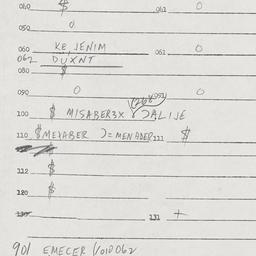 040 $ 041 0
050 0
060 KE JENIM 061 0
062 DUXNT
080 $
090 0 0
100 $ MISABER3X ALIJE
110 $ MEXABER ) = MENABER 111 $
112 $
120 $
131 +
901 EMECER (VOID 062